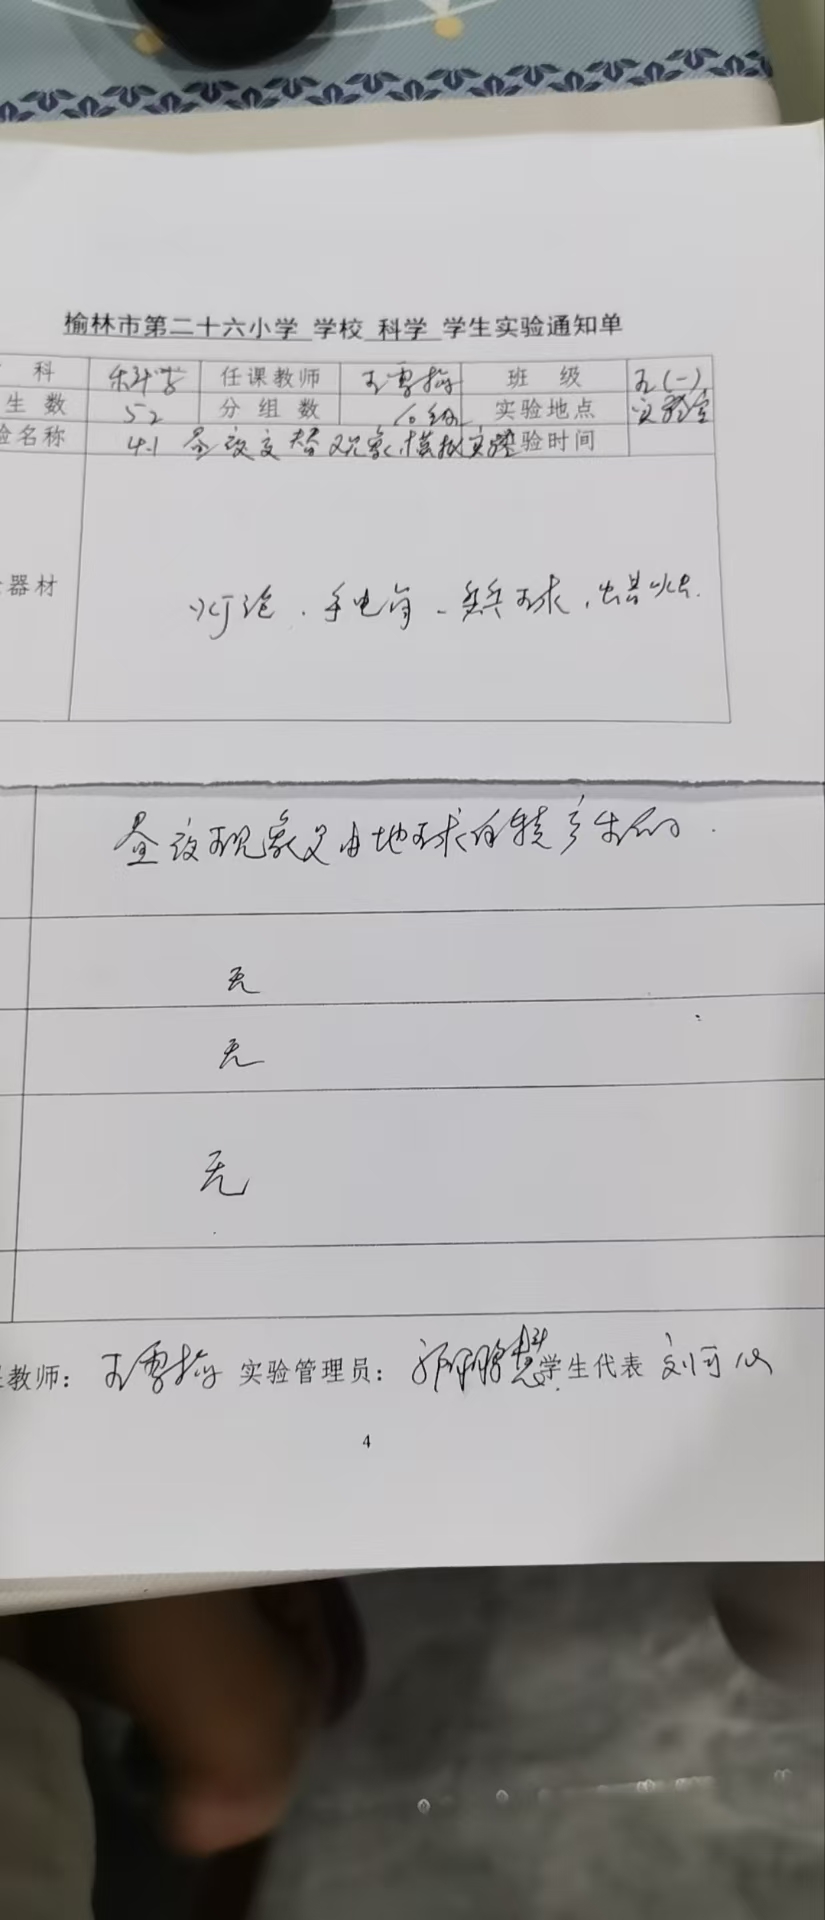 榆林市第二十六小学 学校 科学 学生实验通知单
科 科学 任课教师 王雪梅 班 级 五(一)
生 数 52 分 组 数 6组 实验地点 实验室
验名称 4.1 昼夜交替观象模拟实验 验时间
器材 灯泡、手电筒、乒乓球、蜡烛.
昼夜现象是由地球自转产生的.
无
无
无
教师: 王雪梅 实验管理员: 学生代表 刘可
4